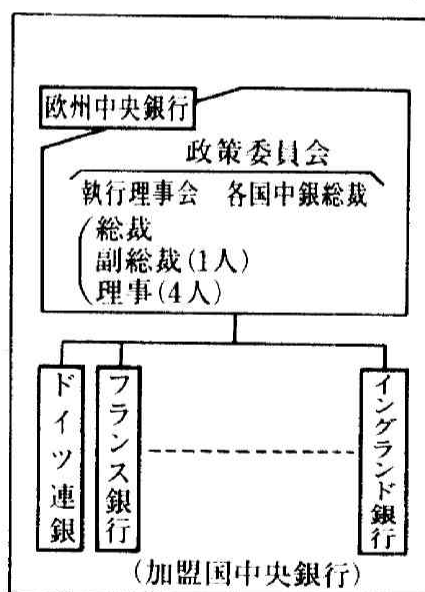 欧州中央銀行
政策委員会
執行理事会 各国中銀総裁
総裁
副総裁(1人)
理事(4人)
ドイツ連銀
フランス銀行
イングランド銀行
(加盟国中央銀行)